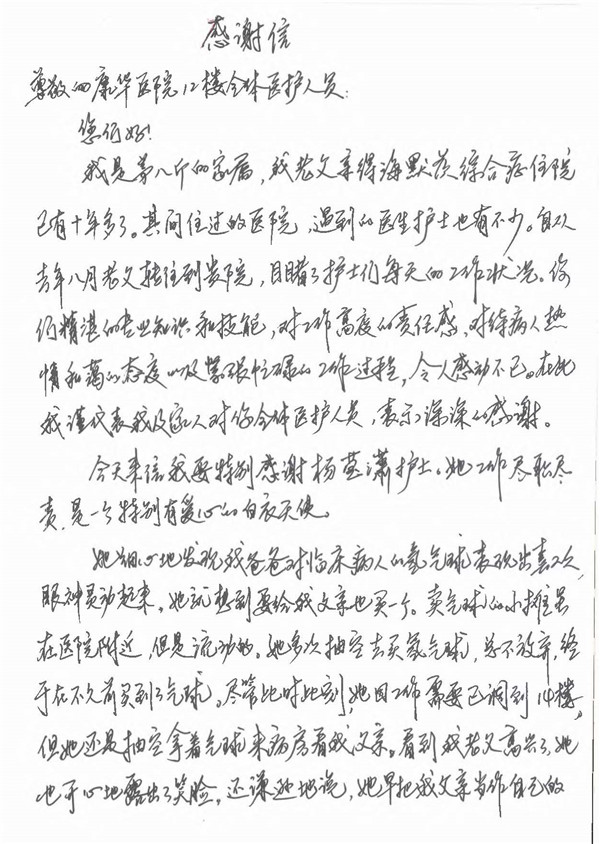 感谢信
尊敬的康华医院12楼全体医护人员：
您们好！
我是第八斤的家属，我老父亲得海默茨综合症住院
已有十年多了。其间住过的医院，遇到的医生护士也有不少。自从
去年八月老父转住到贵院，目睹了护士们每天的工作状况。你
们精湛的专业知识和技能，对工作高度的责任感，对待病人热
情和蔼的态度以及紧张忙碌的工作过程，令人感动不已。在此
我谨代表我及家人对你全体医护人员，表示深深的感谢。
今天来信我要特别感谢杨 潇护士。她工作尽职尽
责，是一个特别有爱心的白衣天使。
她细心地发现我爸爸对临床病人的氢气球表现出喜欢，
眼神灵动起来。她就想到要给我父亲也买一个。卖气球的小摊虽
在医院附近，但是流动的。她多次抽空去买氢气球，总不放弃，终
于在不久前买到了气球。尽管此时此刻，她因工作需要已调到14楼，
但她还是抽空拿着气球来病房看我父亲。看到我老父高兴了，她
也开心地露出了笑脸，还谦逊地说，她早把我父亲当作自己的